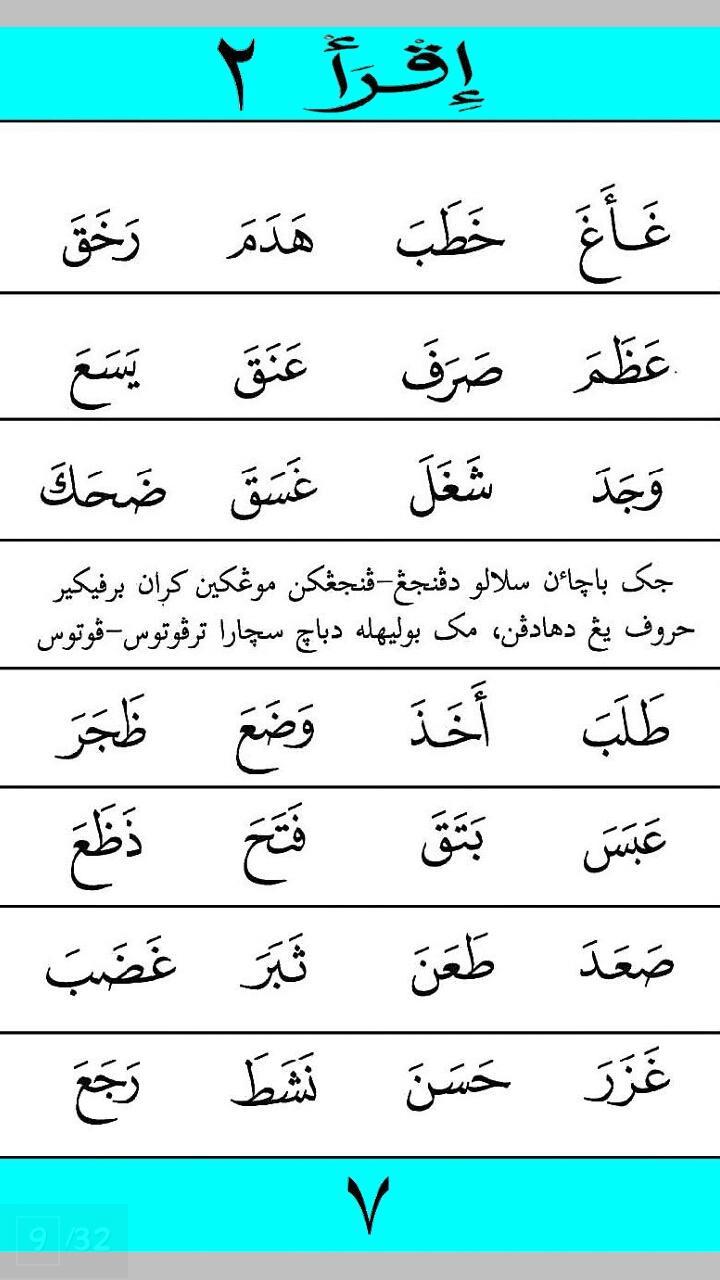 إِقْرَأْ ٢
غَـأَغَ خَطَبَ هَدَمَ رَخَقَ
عَظَمَ صَرَفَ عَنَقَ يَسَعَ
وَجَدَ شَغَلَ غَسَقَ ضَحَكَ
جک باچاءن سلالو دڤنجڠ-ڤنجڠکن موڠکين کران برفيکير
حروف يڠ دهادڤن، مک بوليهله دباچ سچارا ترڤوتوس-ڤوتوس
طَلَبَ أَخَذَ وَضَعَ ظَجَرَ
عَبَسَ بَتَقَ فَتَحَ ذَظَعَ
صَعَدَ طَعَنَ ثَبَرَ غَضَبَ
غَزَرَ حَسَنَ نَشَطَ رَجَعَ
٧
9 /32